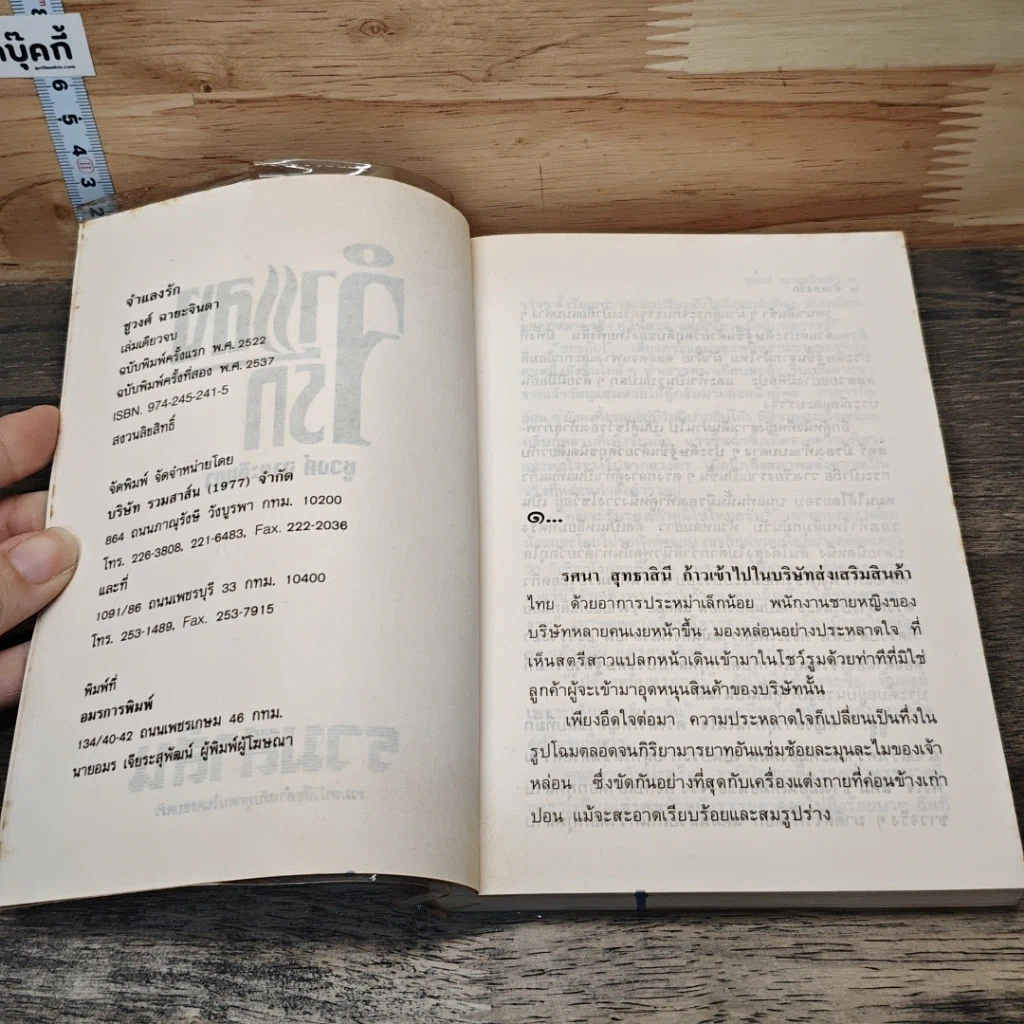 บุ๊คกี้
6
5
4
11
3
2
จำแลงรัก
ชูวงศ์ ฉายะจินดา
เล่มเดียวจบ
ฉบับพิมพ์ครั้งแรก พ.ศ. 2522
ฉบับพิมพ์ครั้งที่สอง พ.ศ. 2537
ISBN. 974-245-241-5
สงวนลิขสิทธิ์
จัดพิมพ์ จัดจำหน่ายโดย
บริษัท รวมสาส์น (1977) จำกัด
864 ถนนภาณุรังษี วังบูรพา กทม. 10200
โทร. 226-3808, 221-6483, Fax. 222-2036
และที่
1091/86 ถนนเพชรบุรี 33 กทม. 10400
โทร. 253-1489, Fax. 253-7915
พิมพ์ที่
อมรการพิมพ์
134/40-42 ถนนเพชรเกษม 46 กทม.
นายอมร เจียระสุพัฒน์ ผู้พิมพ์ผู้โฆษณา
๑...
รศนา สุทธาสินี ก้าวเข้าไปในบริษัทส่งเสริมสินค้า
ไทย ด้วยอาการประหม่าเล็กน้อย พนักงานชายหญิงของ
บริษัทหลายคนเงยหน้าขึ้น มองหล่อนอย่างประหลาดใจ ที่
เห็นสตรีสาวแปลกหน้าเดินเข้ามาในโชว์รูมด้วยท่าทีที่มิใช่
ลูกค้าผู้จะเข้ามาอุดหนุนสินค้าของบริษัทนั้น
เพียงอึดใจต่อมา ความประหลาดใจก็เปลี่ยนเป็นทึ่งใน
รูปโฉมตลอดจนกิริยามารยาทอันแช่มช้อยละมุนละไมของเจ้า
หล่อน ซึ่งขัดกันอย่างที่สุดกับเครื่องแต่งกายที่ค่อนข้างเก่า
ปอน แม้จะสะอาดเรียบร้อยและสมรูปร่าง